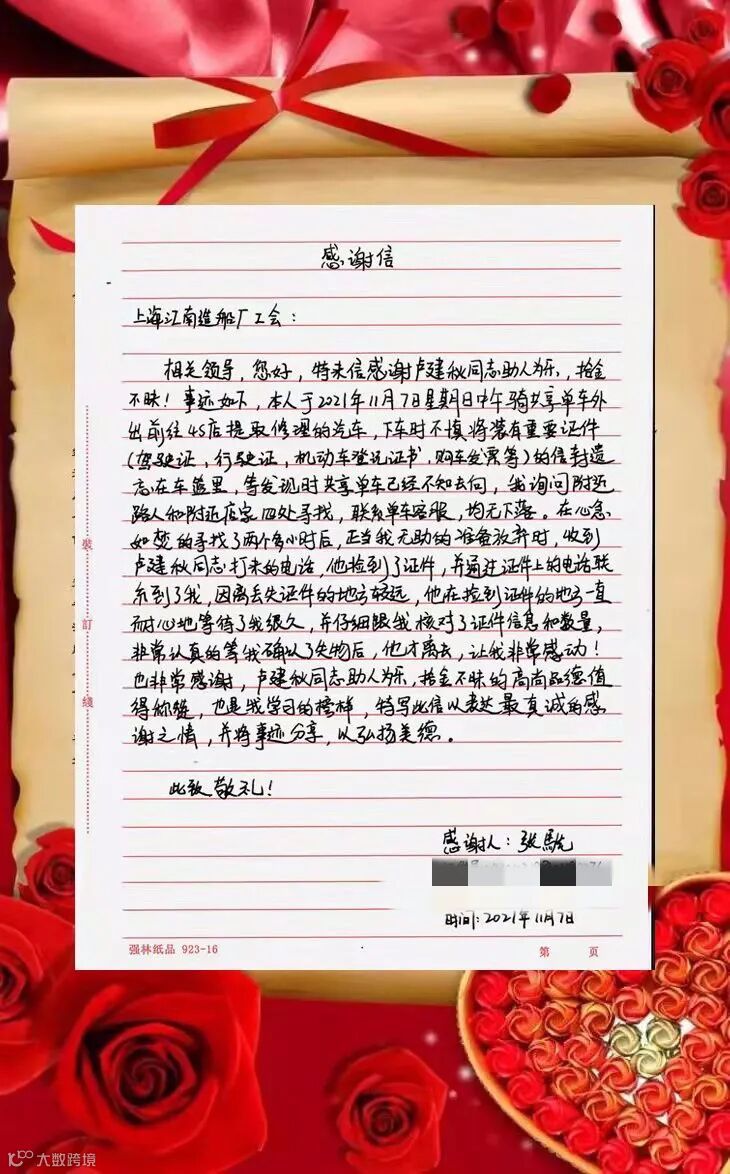 感谢信
上海江南造船厂工会：
相关领导，您好，特来信感谢卢建秋同志助人为乐，拾金
不昧！事迹如下，本人于2021年11月7日星期日中午骑共享单车外
出前往4S店提取修理的汽车，下车时不慎将装有重要证件
（驾驶证，行驶证，机动车登记证书，购车发票等）的信封遗
忘在车篮里，等发现时共享单车已经不知去向，我询问附近
路人和附近店家四处寻找，联系单车客服，均无下落。在心急
如焚的寻找了两个多小时后，正当我无助的准备放弃时，收到
卢建秋同志打来的电话，他捡到了证件，并通过证件上的电话联
系到了我，因离丢失证件的地方较远，他在捡到证件的地方一直
耐心地等待了我很久，并仔细跟我核对了证件信息和数量，
非常认真的等我确认了失物后，他才离去，让我非常感动！
也非常感谢，卢建秋同志助人为乐，拾金不昧的高尚品德值
得称赞，也是我学习的榜样，特写此信以表达最真诚的感
谢之情，并将事迹分享，以弘扬美德。
此致敬礼！
感谢人：张
时间：2021年11月7日
装
订
线
强林纸品 923-16
第 页
大数跨境